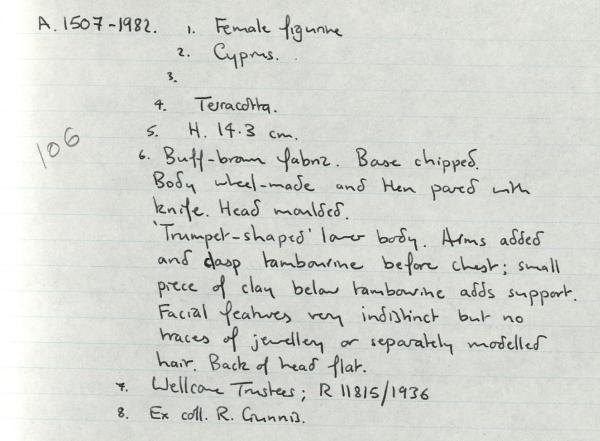 A.1507-1982. 1. Female figurine
2. Cyprus.
3.
4. Terracotta.
5. H. 14.3 cm.
106
6. Buff-brown fabric. Base chipped.
Body wheel-made and then pared with
knife. Head moulded.
'Trumpet-shaped' lower body. Arms added
and clasp tambourine before chest; small
piece of clay below tambourine adds support.
Facial features very indistinct but no
traces of jewellery or separately modelled
hair. Back of head flat.
7. Wellcome Trustees; R 11815/1936
8. Ex coll. R. Gunnis.